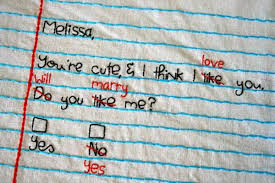 Melissa,
love
You're cute, & I think I like you.
will marry
Do you like me?
Yes No
yes